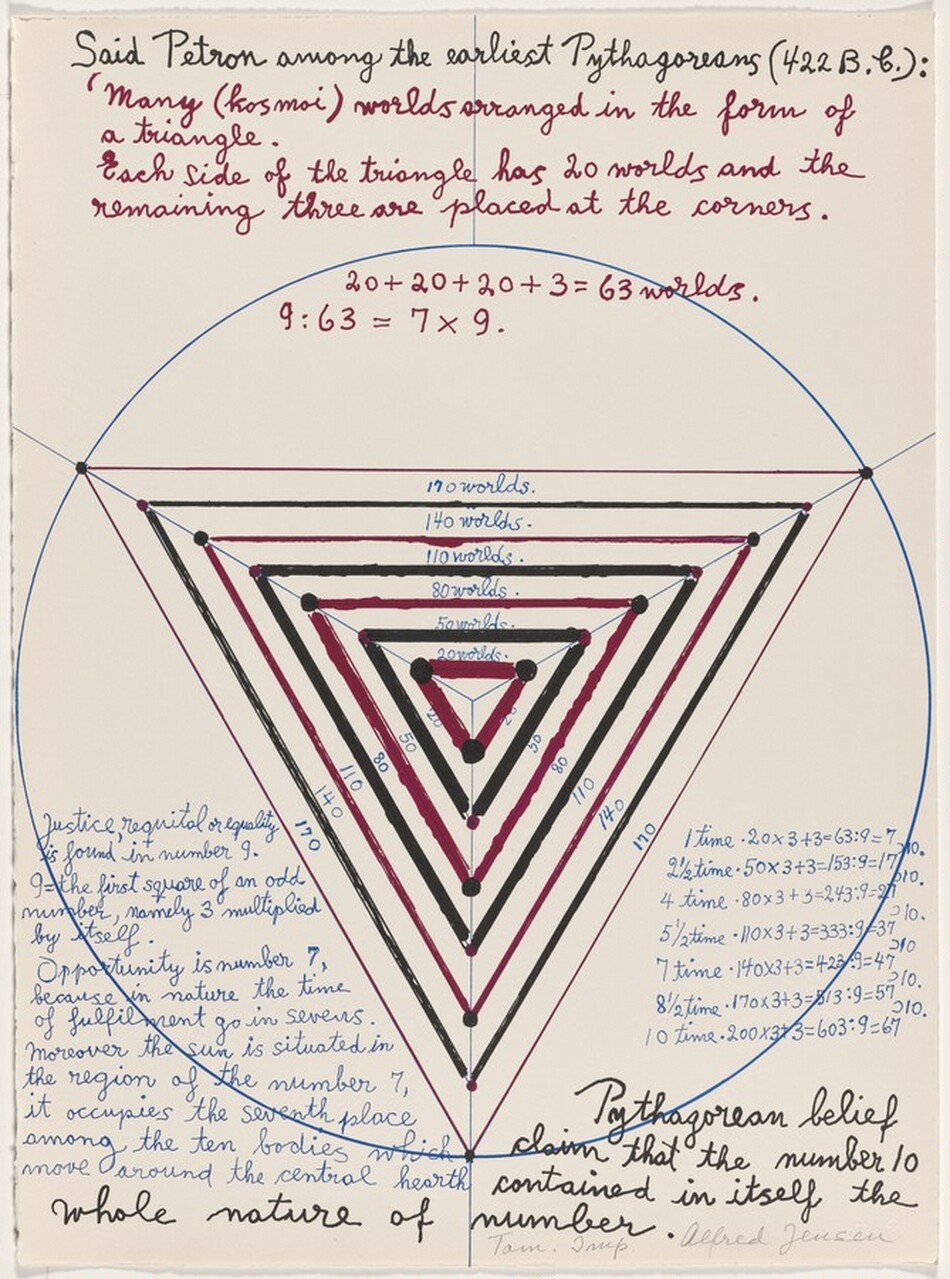 Said Petron among the earliest Pythagoreans (422 B.C.):
'Many (kosmoi) worlds arranged in the form of
a triangle.
Each side of the triangle has 20 worlds and the
remaining three are placed at the corners.
20+20+20+3=63 worlds.
9:63 = 7 x 9.
170 worlds.
140 worlds.
110 worlds.
80 worlds.
50 worlds.
20 worlds.
20 20
50 50
80 80
110 110
140 140
170 170
Justice, requital or equality
is found in number 9.
9=the first square of an odd
number, namely 3 multiplied
by itself.
Opportunity is number 7,
because in nature the time
of fulfilment go in sevens.
Moreover the sun is situated in
the region of the number 7,
it occupies the seventh place
among the ten bodies which
move around the central hearth
1 time·20x3+3=63:9=7
>10.
2½time·50x3+3=153:9=17
>10.
4 time·80x3+3=243:9=27
>10.
5½time·110x3+3=333:9=37
>10
7 time·140x3+3=423:9=47
>10.
8½time·170x3+3=513:9=57
>10.
10 time·200x3+3=603:9=67
Pythagorean belief
claim that the number 10
contained in itself the
whole nature of number.
Tam. Imp. Alfred Jensen